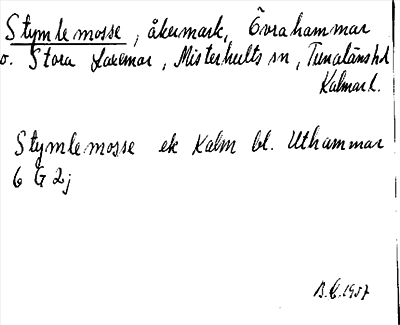 Stymlemosse, åkermark, Övrahammar
o. Stora Laxemar, Misterhults sn, Tunaläns hd
Kalmar l.
Stymlemosse ek Kalm bl. Uthammar
6 G 2j
B.E. 1957